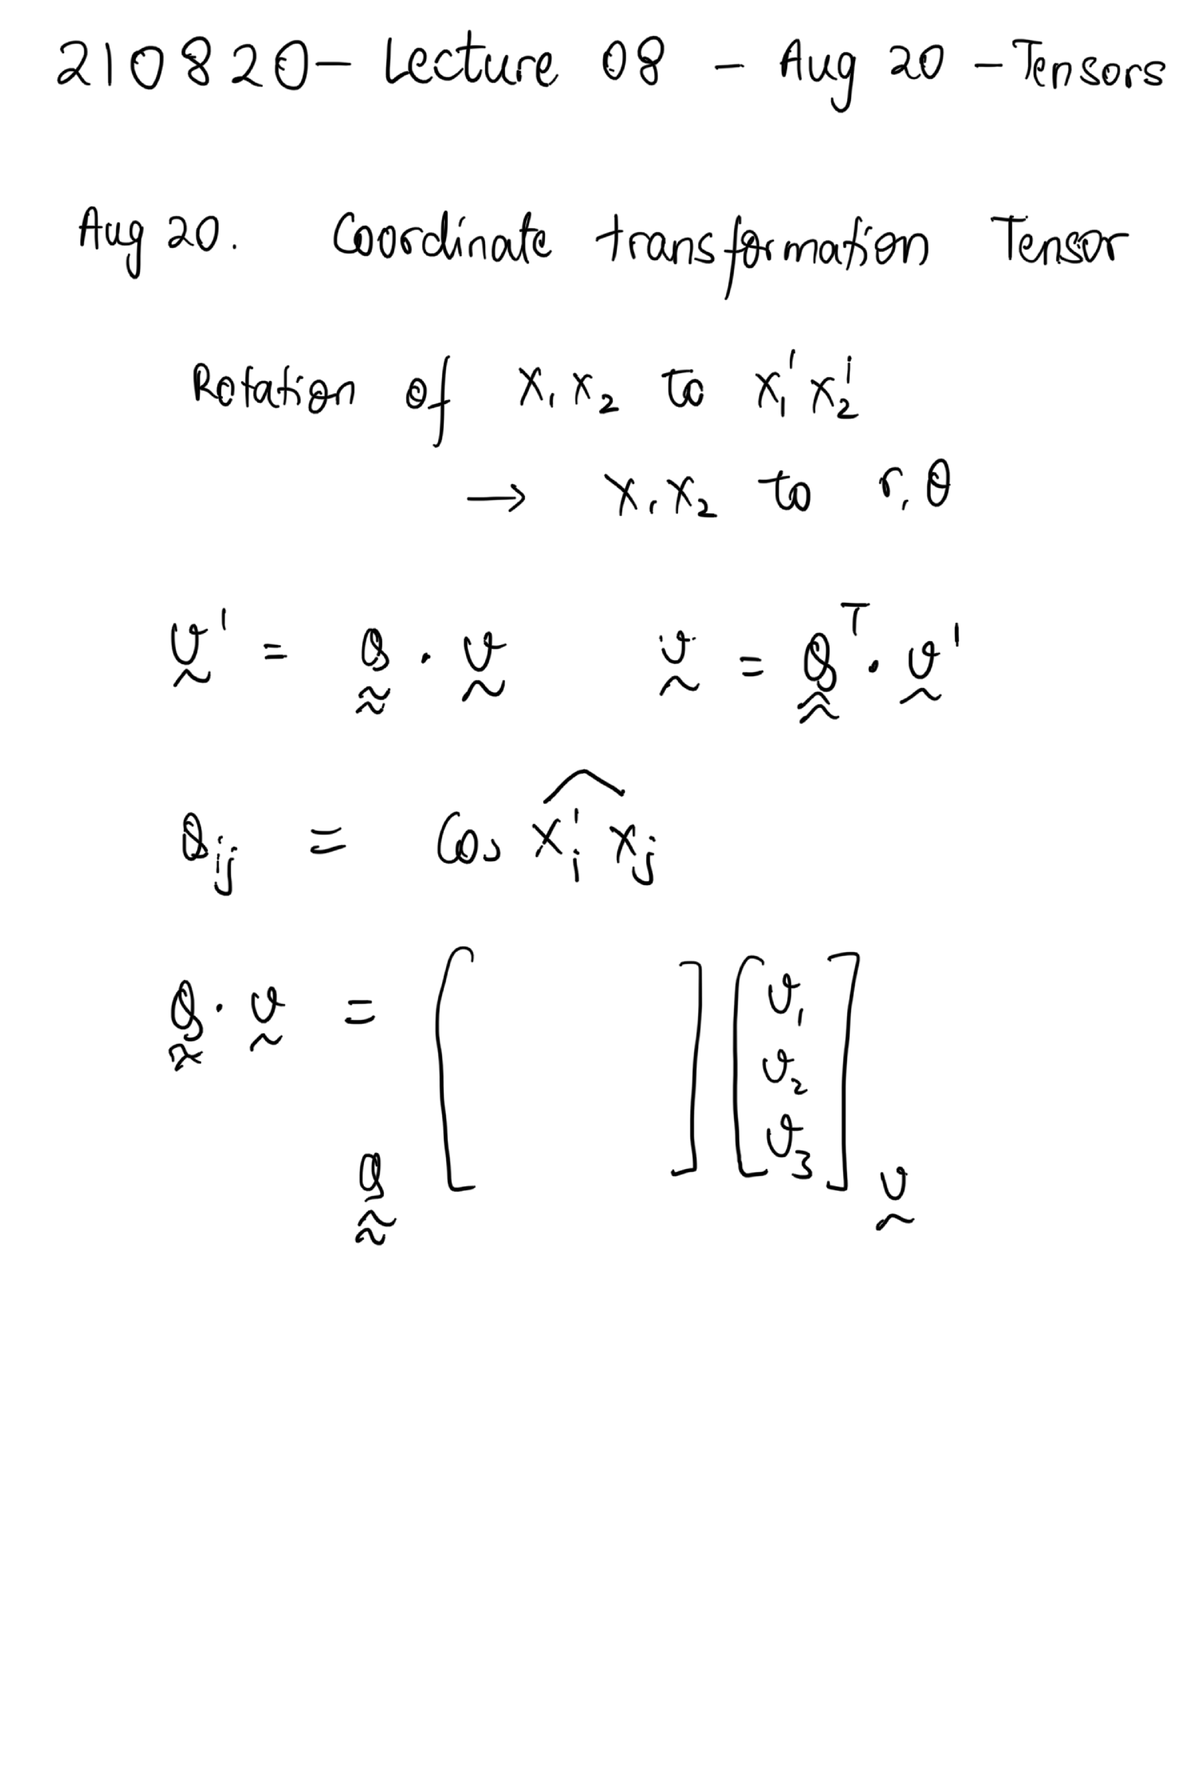 210820- Lecture 08 - Aug 20 - Tensors
Aug 20. Coordinate transformation Tensor
Rotation of x₁ x₂ to x₁' x₂'
→ x₁ x₂ to r, θ
v' = Q · v    v = Qᵀ · v'
Qij = Cos xi' xj
Q · v = [ ] [v₁
v₂
v₃]
Q v